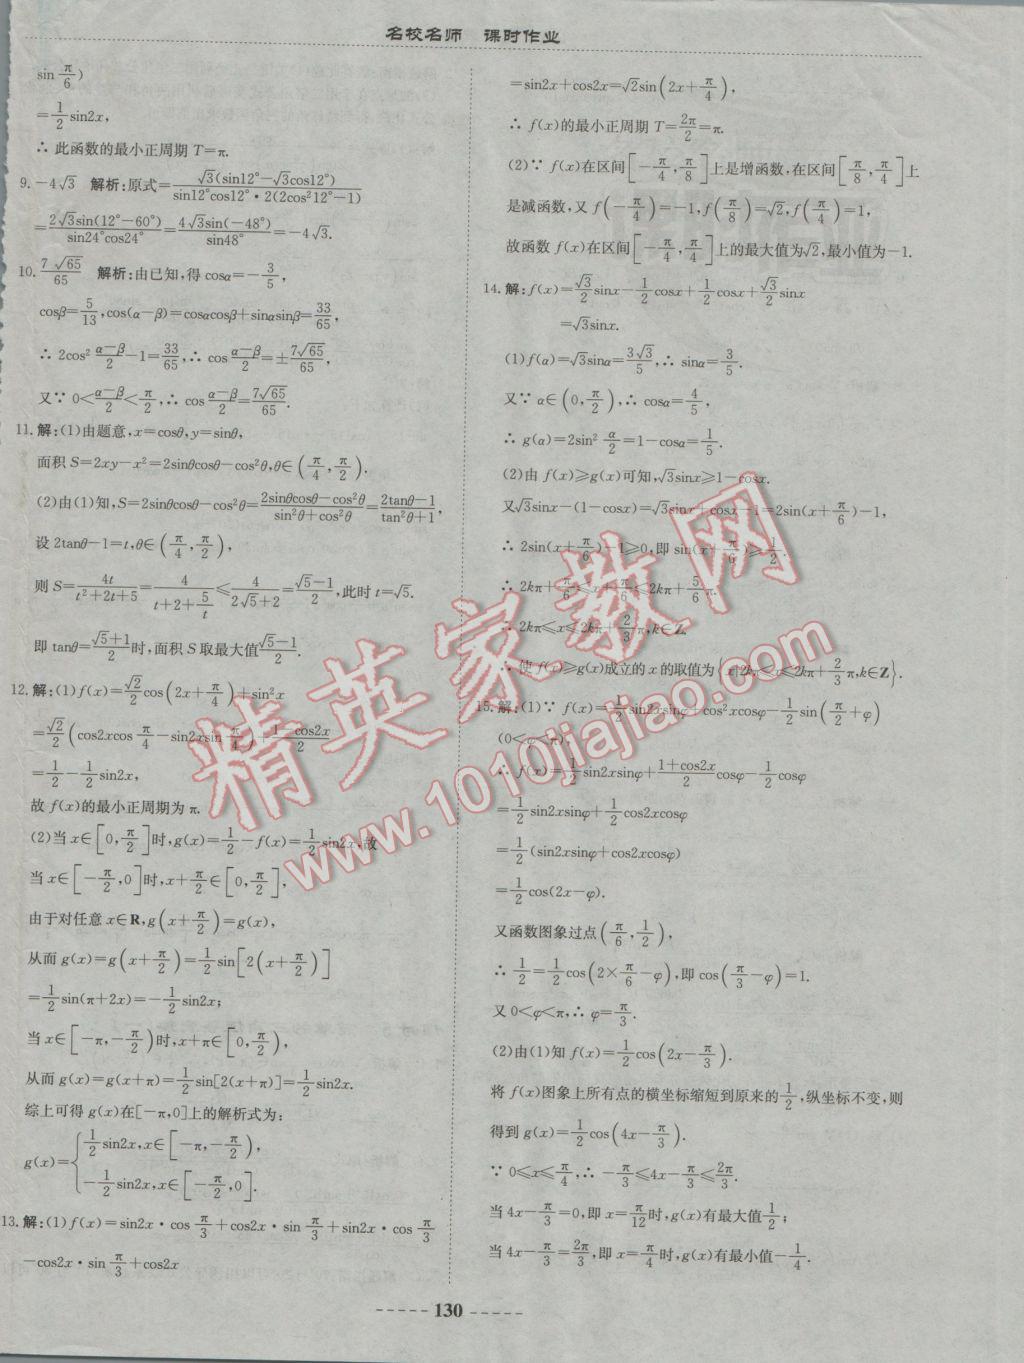 名校名师 课时作业
sin π/6)
=1/2 sin2x,
∴ 此函数的最小正周期 T=π.
9. -4√3 解析:原式=√3(sin12°-√3cos12°)/(sin12°cos12°·2(2cos²12°-1))
=2√3sin(12°-60°)/(sin24°cos24°)=4√3sin(-48°)/sin48°=-4√3.
10. 7√65/65 解析:由已知,得 cosα=-3/5,
cosβ=5/13,cos(α-β)=cosαcosβ+sinαsinβ=33/65,
∴ 2cos² (α-β)/2-1=33/65,∴ cos (α-β)/2=±7√65/65,
又∵ 0<(α-β)/2<π/2,∴ cos (α-β)/2=7√65/65.
11. 解:(1)由题意,x=cosθ,y=sinθ,
面积 S=2xy-x²=2sinθcosθ-cos²θ,θ∈(π/4,π/2).
(2)由(1)知,S=2sinθcosθ-cos²θ=(2sinθcosθ-cos²θ)/(sin²θ+cos²θ)=(2tanθ-1)/(tan²θ+1),
设 2tanθ-1=t,θ∈(π/4,π/2),
则 S=4t/(t²+2t+5)=4/(t+2+5/t)≤4/(2√5+2)=(√5-1)/2,此时 t=√5.
即 tanθ=(√5+1)/2时,面积 S 取最大值(√5-1)/2.
12. 解:(1)f(x)=√2/2 cos(2x+π/4)+sin²x
=√2/2(cos2xcos π/4-sin2xsin π/4)+(1-cos2x)/2
=1/2-1/2 sin2x,
故 f(x)的最小正周期为 π.
(2)当 x∈[0,π/2]时,g(x)=1/2-f(x)=1/2 sin2x,故
当 x∈[-π/2,0]时,x+π/2∈[0,π/2],
由于对任意 x∈R,g(x+π/2)=g(x),
从而 g(x)=g(x+π/2)=1/2 sin[2(x+π/2)]
=1/2 sin(π+2x)=-1/2 sin2x;
当 x∈[-π,-π/2)时,x+π∈[0,π/2),
从而 g(x)=g(x+π)=1/2 sin[2(x+π)]=1/2 sin2x.
综上可得 g(x)在[-π,0]上的解析式为:
g(x)={1/2 sin2x,x∈[-π,-π/2),
-1/2 sin2x,x∈[-π/2,0].
13. 解:(1)f(x)=sin2x·cos π/3+cos2x·sin π/3+sin2x·cos π/3
-cos2x·sin π/3+cos2x
=sin2x+cos2x=√2sin(2x+π/4),
∴ f(x)的最小正周期 T=2π/2=π.
(2)∵ f(x)在区间[-π/4,π/8]上是增函数,在区间[π/8,π/4]上
是减函数,又 f(-π/4)=-1,f(π/8)=√2,f(π/4)=1,
故函数 f(x)在区间[-π/4,π/4]上的最大值为√2,最小值为-1.
14. 解:f(x)=√3/2 sinx-1/2 cosx+1/2 cosx+√3/2 sinx
=√3sinx.
(1)f(α)=√3sinα=3√3/5,∴ sinα=3/5.
又∵ α∈(0,π/2),∴ cosα=4/5,
∴ g(α)=2sin² α/2=1-cosα=1/5.
(2)由 f(x)≥g(x)可知,√3sinx≥1-cosx.
又√3sinx-(1-cosx)=√3sinx+cosx-1=2sin(x+π/6)-1,
∴ 2sin(x+π/6)-1≥0,即 sin(x+π/6)≥1/2.
∴ 2kπ+π/6≤x+π/6≤2kπ+5/6π.
∴ 2kπ≤x≤2kπ+2/3π,k∈Z.
∴ 使 f(x)≥g(x)成立的 x 的取值为{x|2kπ≤x≤2kπ+2/3π,k∈Z}.
15. 解:(1)∵ f(x)=1/2 sin2xsinφ+cos²xcosφ-1/2 sin(π/2+φ)
(0<φ<π),
∴ f(x)=1/2 sin2xsinφ+(1+cos2x)/2 cosφ-1/2 cosφ
=1/2 sin2xsinφ+1/2 cos2xcosφ
=1/2(sin2xsinφ+cos2xcosφ)
=1/2 cos(2x-φ).
又函数图象过点(π/6,1/2),
∴ 1/2=1/2 cos(2×π/6-φ),即 cos(π/3-φ)=1.
又 0<φ<π,∴ φ=π/3.
(2)由(1)知 f(x)=1/2 cos(2x-π/3).
将 f(x)图象上所有点的横坐标缩短到原来的1/2,纵坐标不变,则
得到 g(x)=1/2 cos(4x-π/3).
∵ 0≤x≤π/4,∴ -π/3≤4x-π/3≤2π/3.
当 4x-π/3=0,即 x=π/12时,g(x)有最大值1/2;
当 4x-π/3=2π/3,即 x=π/4时,g(x)有最小值-1/4.
130
精英家教网
www.1010jiajiao.com